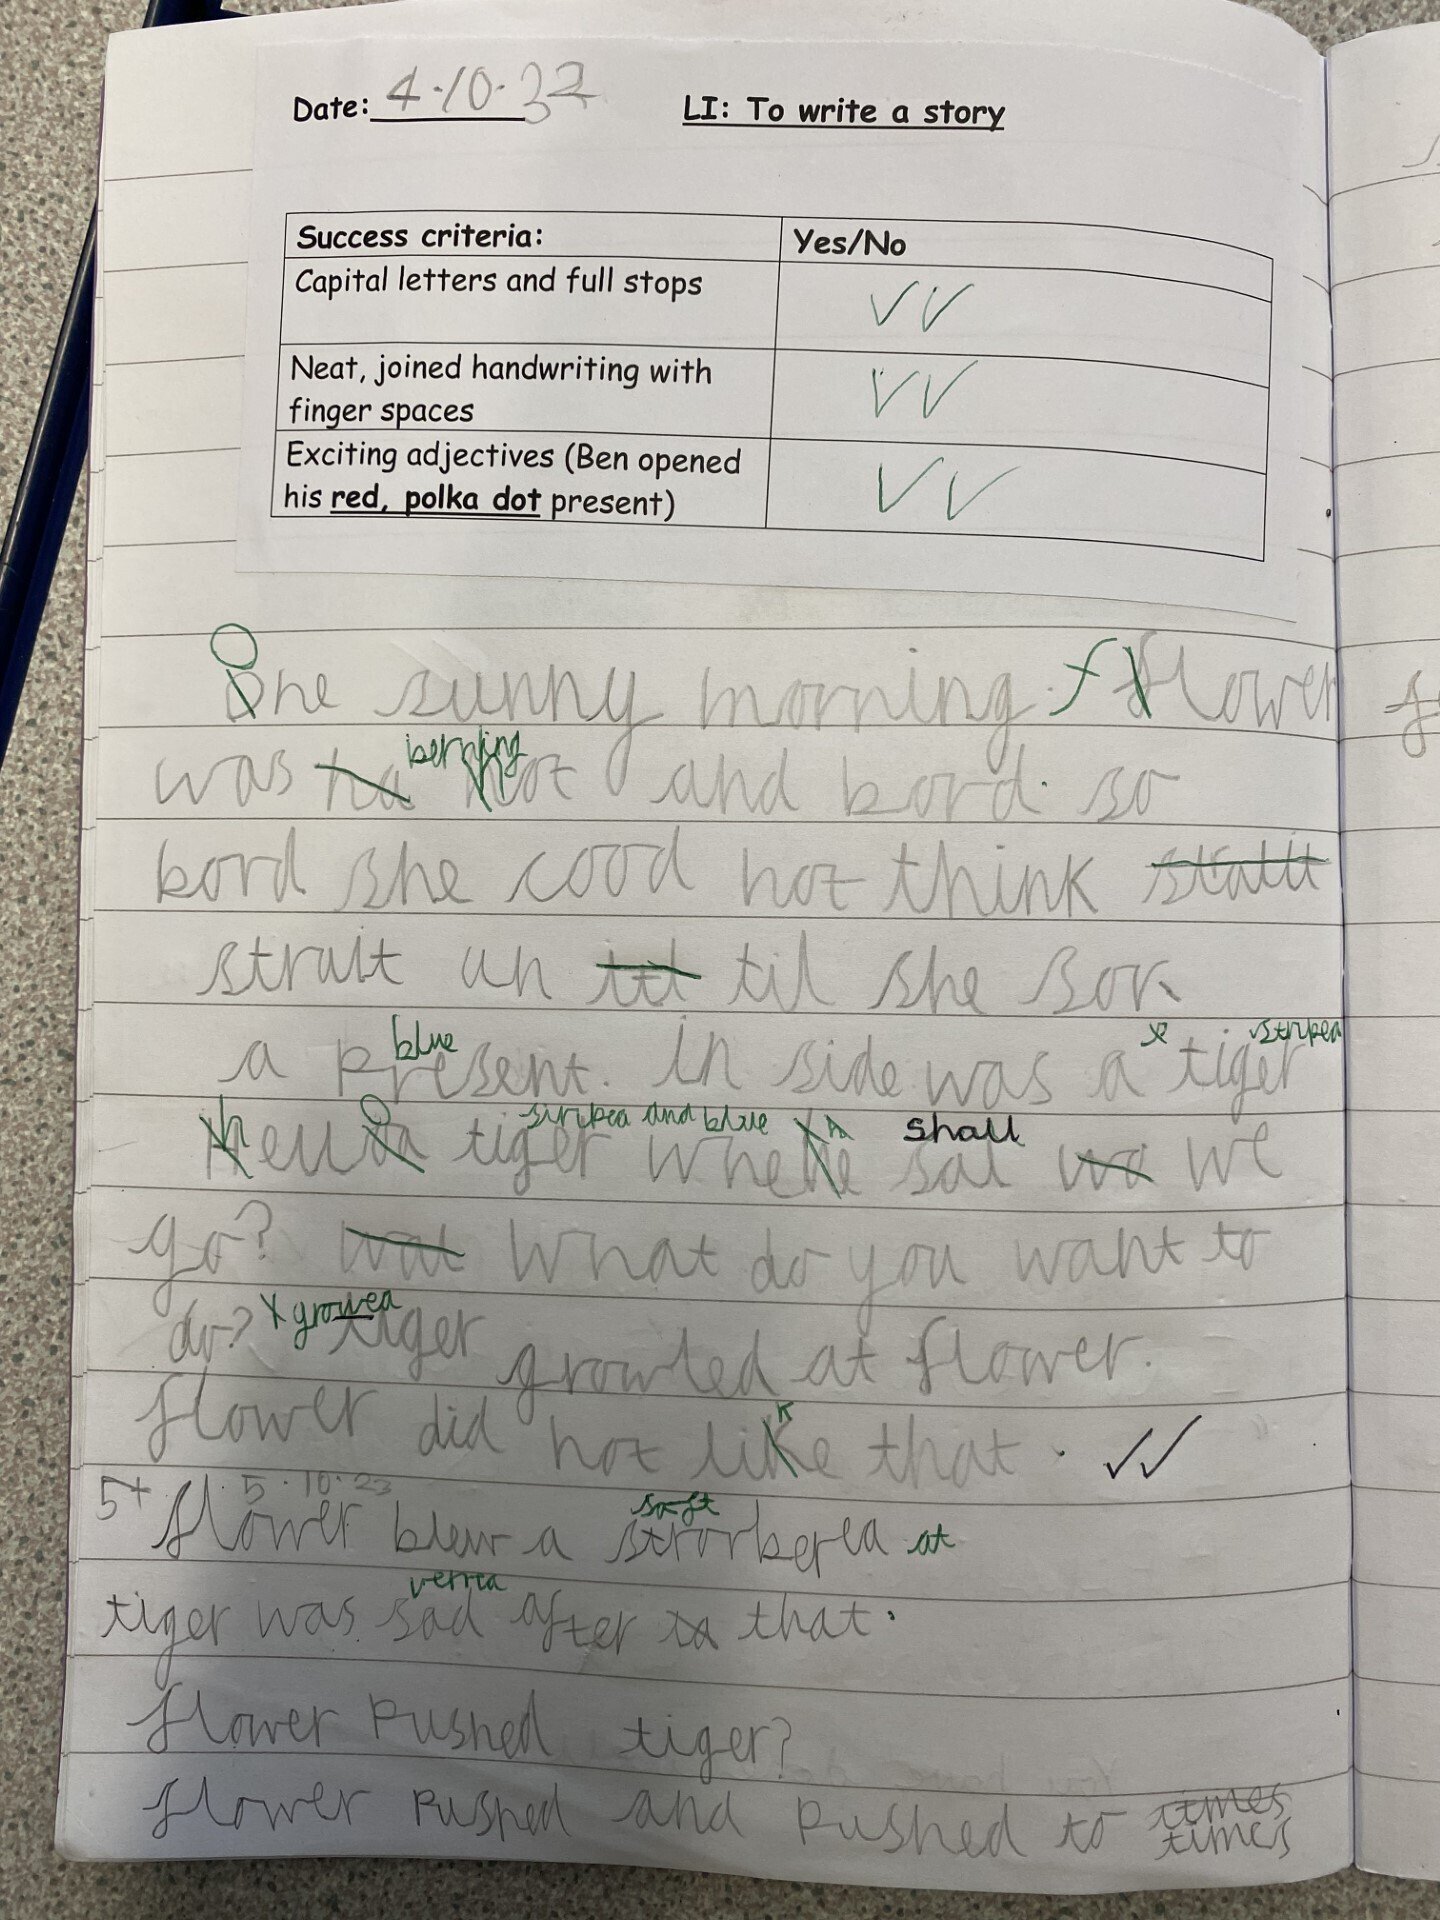 Date: 4.10.23
LI: To write a story
Success criteria:
Yes/No
Capital letters and full stops
Neat, joined handwriting with
finger spaces
Exciting adjectives (Ben opened
his red, polka dot present)
One sunny morning. flower
berning
was ha hot and bord. so
bord she cood not think
strait un til she sor
blue
striped
a present. in side was a tiger
striped and blue
shall
tiger where sal we
go? wat What do you want to
growed
do? tiger growled at flower.
flower did not like that.
5.10.23
soft
flower blew a strorberea at
verrea
tiger was sad after ta that.
flower Pushed tiger?
flower Pushed and Pushed to times
times